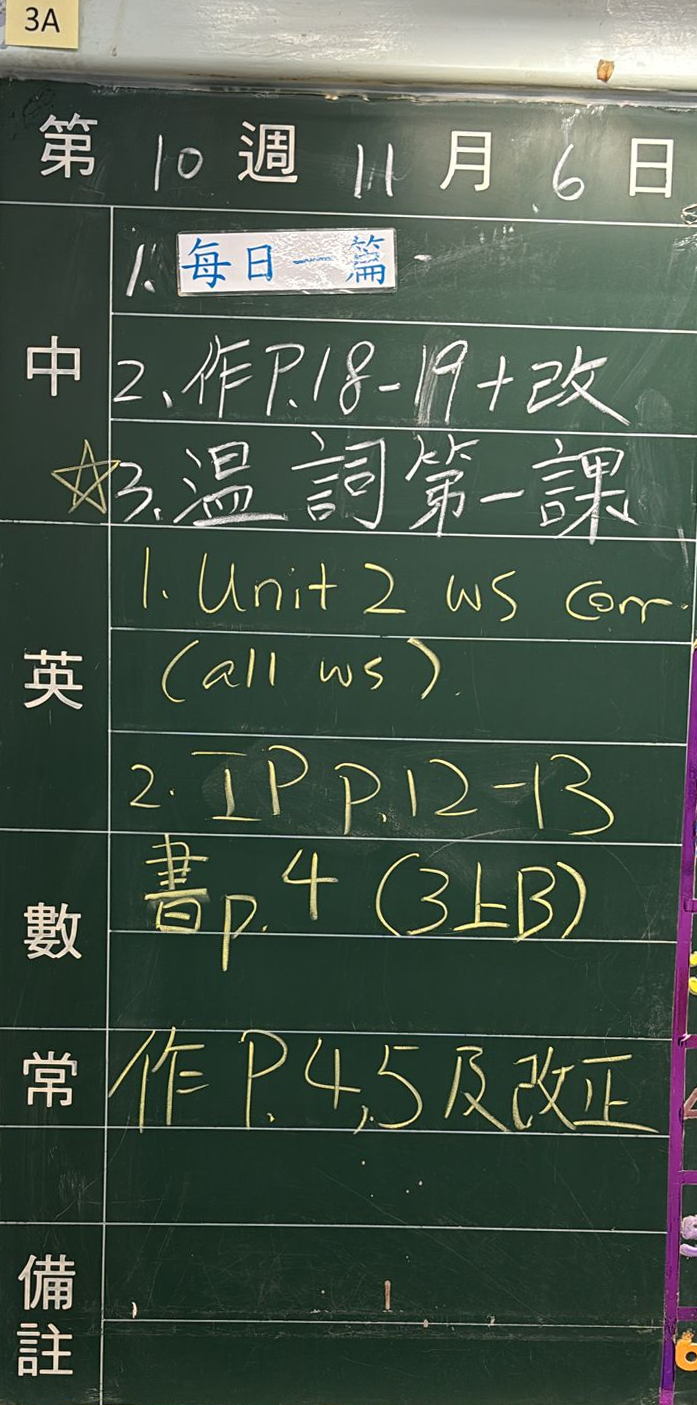 3A
第 10 週 11 月 6 日
中
1. 每日一篇
2、作P.18-19+改
☆3.温詞第一課
英
1. Unit 2 ws corr.
(all ws).
2. IP p.12-13
數
書p.4 (3上B)
常
作 P.4,5及改正
備註